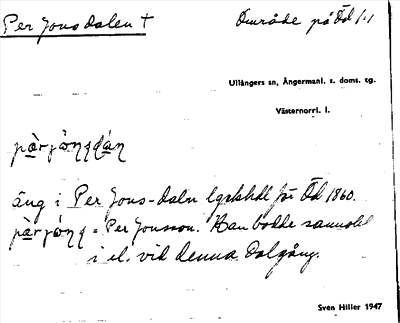 Per Jonsdalen † Område på Öd 1:1
Ullångers sn, Ångermanl. s. doms. tg.
Västernorrl. l.
äng i Per Jons-daln lgskhdl för Öd 1860.
= Per Jonsson. Han bodde sannolikt
i el. vid denna Dalgång.
Sven Hiller 1947